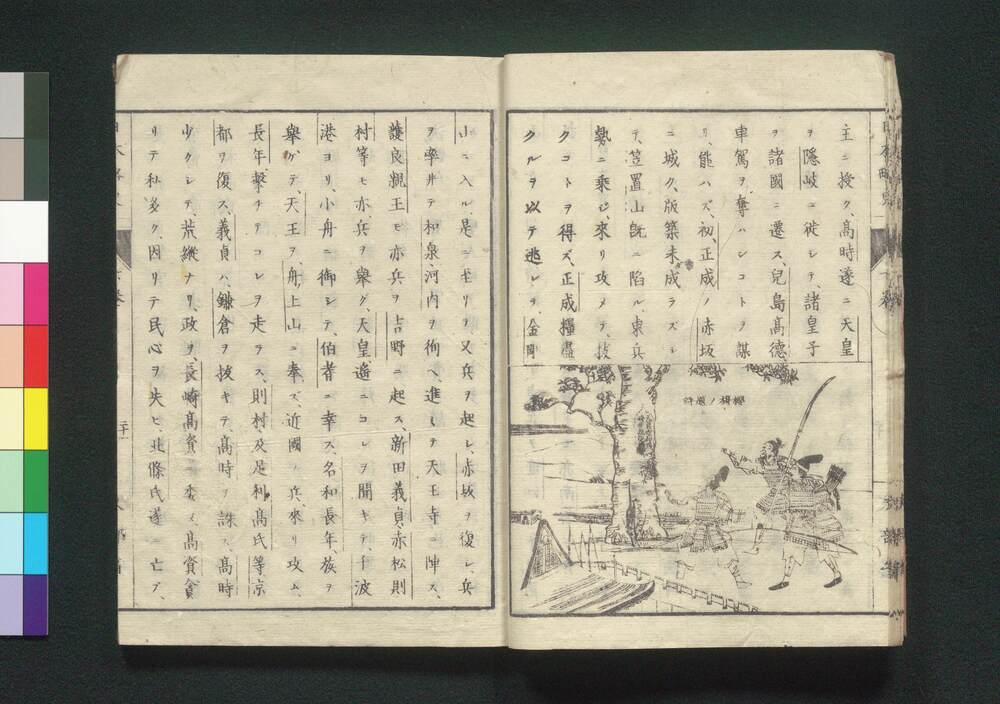 主ニ授ク、高時遂ニ天皇
ヲ隱岐ニ徙シテ、諸皇子
ヲ諸國ニ遷ス、兒島高德、
車駕ヲ奪ハンコトヲ謀
リ、能ハズ、初、正成ノ赤坂
ニ城ク、版築未成ラズシ
テ、笠置山既ニ陷ル、東兵
勢ニ乘ジ、來リ攻メテ、拔
クコトヲ得ズ、正成糧盡
クルヲ以テ逃レテ、金剛
山ニ入ル、是ニ至リテ又兵ヲ起シ、赤坂ヲ復シ、兵
ヲ率井テ和泉、河内ヲ徇ヘ、進ミテ天王寺ニ陣ス、
護良親王モ亦兵ヲ吉野ニ起ス、新田義貞、赤松則
村等モ亦、兵ヲ舉グ、天皇遙ニコレヲ聞キテ、千波
港ヨリ、小舟ニ御シテ、伯耆ニ幸ス、名和長年、族ヲ
舉ゲテ、天王ヲ、舟上山ニ奉ズ、近國ノ兵來リ攻ム、
長年、擊チテコレヲ走ラス、則村、及足利高氏等京
都ヲ復ス、義貞ハ、鎌倉ヲ拔キテ、高時ヲ誅ス、高時
少クシテ、荒縱ナリ、政ヲ、長崎高資ニ委メ、高資貪
リテ私多ク、因リテ民心ヲ失ヒ、北條氏遂ニ亡ブ、